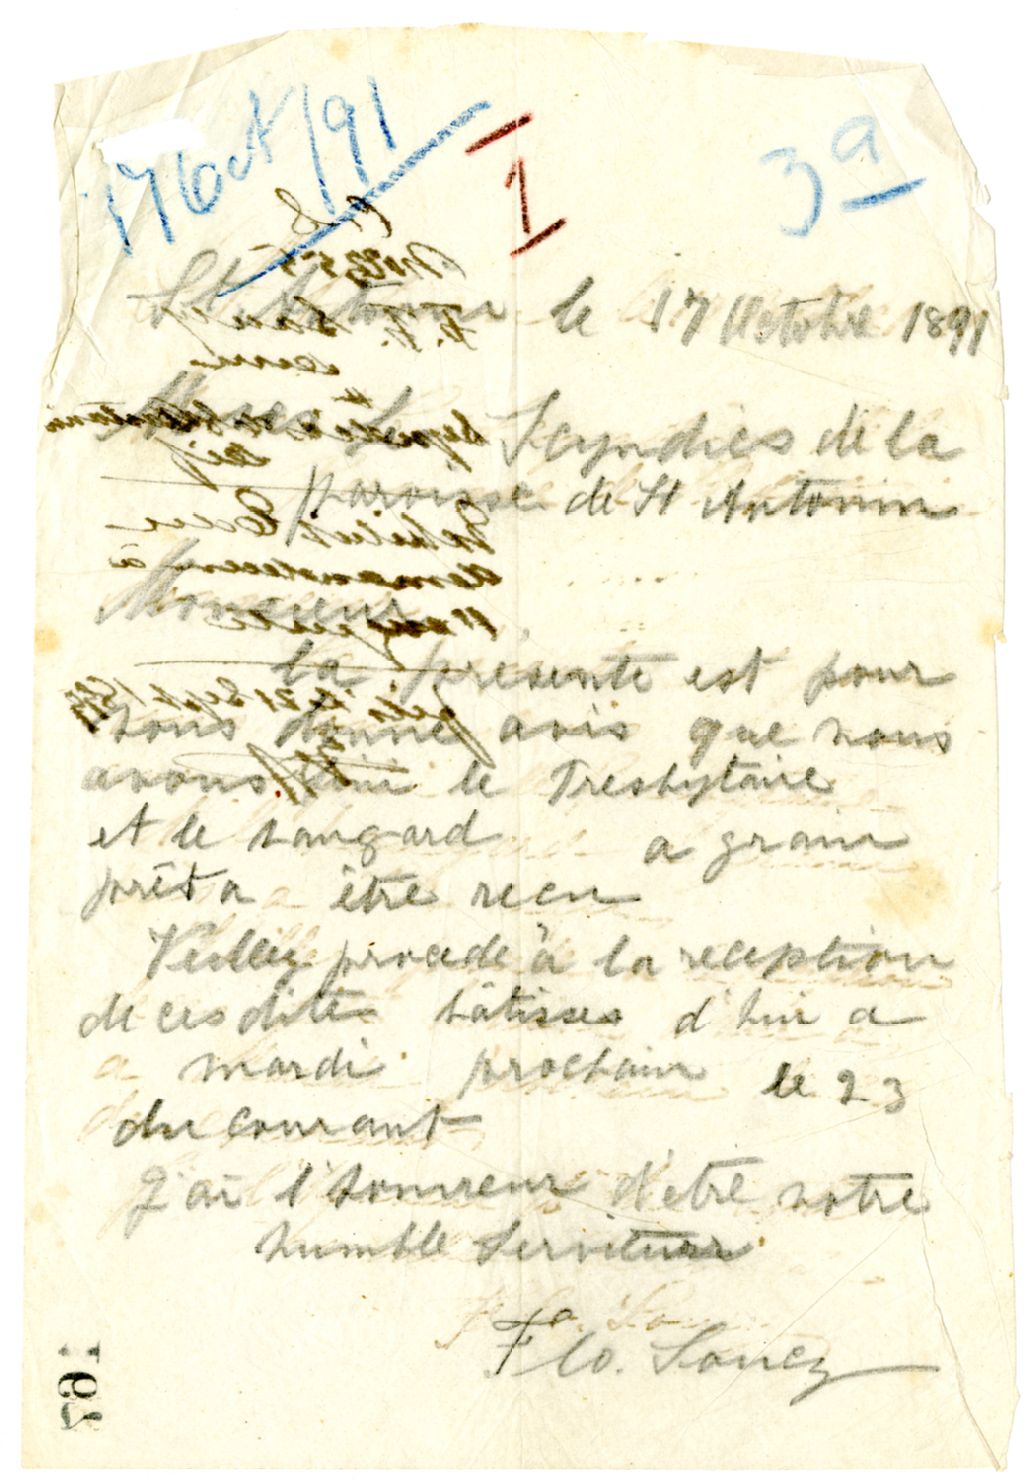 17 Oct/91
1
3a
St Antonin le 17 Octobre 1891
Scyndics de la
paroisse de St Antonin
Monsieur
la présente est pour
vous donné avis que nous
avons fini le Presbytaire
et le hangard a grain
prêt a être recu
Veillez procede à la reception
de ces dites bâtisses d'hui a
mardi prochain le 23
du courant
J'ai l'honneur d'etre votre
humble Serviteur
Flo. Soucy
167